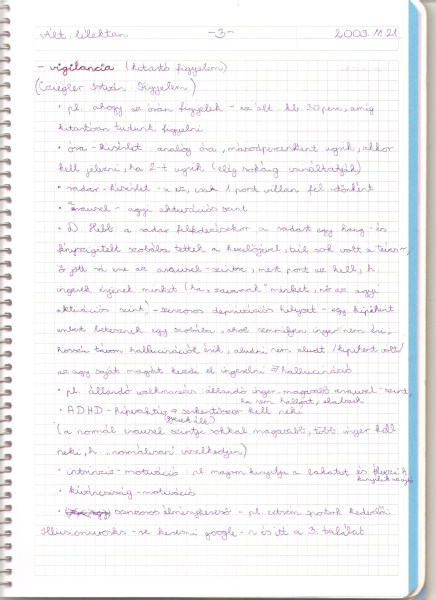 Ált. lélektan -3- 2003. 11. 21.
- vigilancia (kitartó figyelem)
(Czigler István: Figyelem)
• pl. ahogy az órán figyelek - ez ált. kb. 30 perc, amíg
kitartóan tudunk figyelni
• óra-kísérlet: analóg óra, másodpercenként ugrik, akkor
kell jelezni, ha 2-t ugrik (elég sokáig csinálták)
• radar-kísérlet - u.ez, csak 1 pont villan fel időnként
• arousal - agyi aktivációs szint
• D. Hebb: a radar felfedezésekor a radart egy hang- és
fényszigetelt szobába tették a kezelőjével, túl sok volt a tévesztés,
ő jött rá erre az arousal-szintre, mert pont az kell, h.
ingerek érjenek minket (ha "zavarnak" minket, nő az agyi
aktivációs szint) - szenzoros deprivációs helyzet - egy kipihent
embert letesznek egy szobába, ahol semmilyen inger nem éri,
hosszú távon hallucinációk érik, aludni nem aludt /kipihent volt/
az agy saját magát kezdi el ingerelni ⇒ hallucináció
• pl. állandó walkmanen állandó inger - magasabb arousal-szint,
ha nem hallgat, elalszik
• ADHD - hiperaktív ⇒ serkentőszer kell neki
(a normál arousal szintje sokkal magasabb, több inger kell
neki, h. "normálisan" viselkedjen)
• intrinzic-motiváció: pl. majom kinyitja a lakatot és
kinyílik az ajtó
• kíváncsiság-motiváció
• szenzoros élménykereső - pl. extrém sportok kedvelői
Illusionworks - re keresni google - n és itt a 3. találat